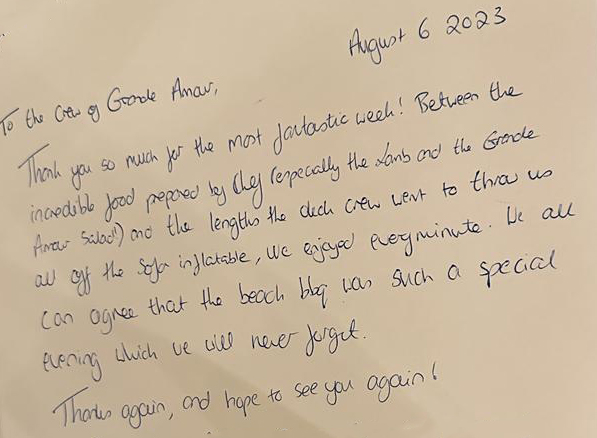 August 6 2023
To the Crew of Grande Amour,
Thank you so much for the most fantastic week! Between the
incredible food prepared by Chef (especially the Lamb and the Grande
Amour Salad!) and the lengths the deck crew went to throw us
all off the Sofa inflatable, we enjoyed every minute. We all
can agree that the beach bbq was such a special
evening which we will never forget.
Thanks again, and hope to see you again!